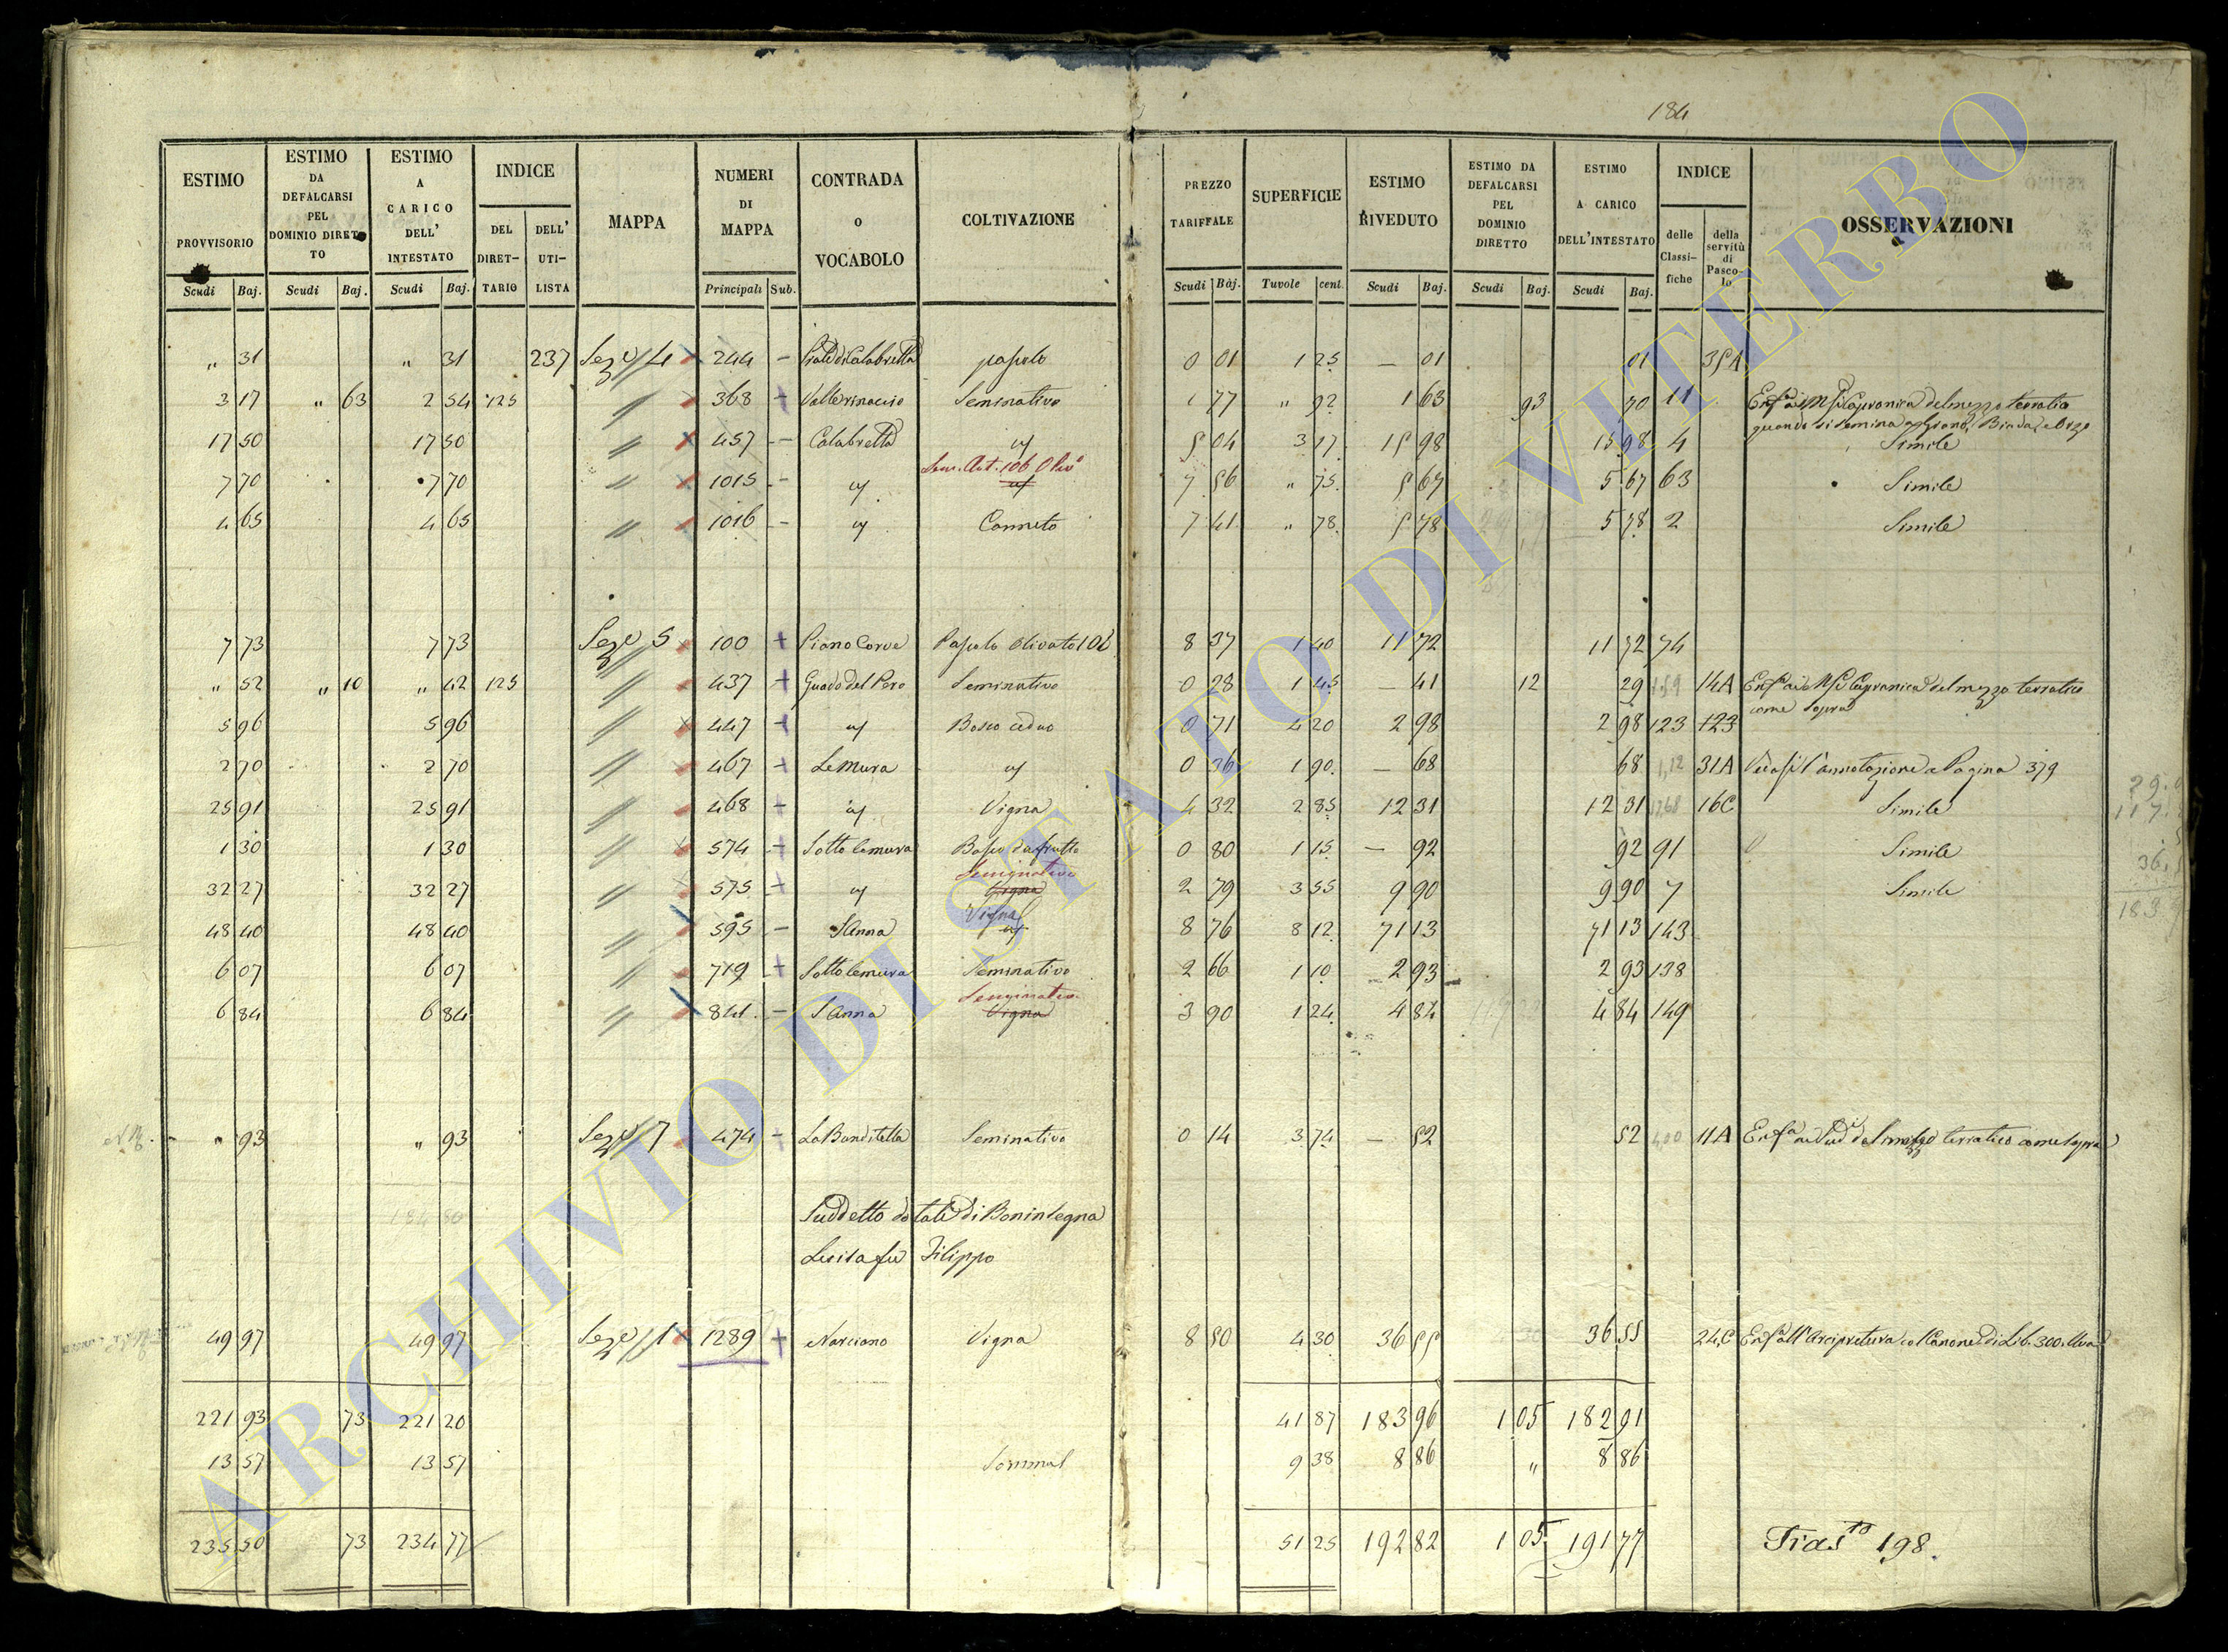 184
ESTIMO PROVVISORIO | ESTIMO DA DEFALCARSI PEL DOMINIO DIRETTO | ESTIMO A CARICO DELL' INTESTATO | INDICE DEL DIRET-TARIO | DELL' UTI-LISTA | MAPPA | NUMERI DI MAPPA | CONTRADA o VOCABOLO | COLTIVAZIONE | PREZZO TARIFFALE | SUPERFICIE | ESTIMO RIVEDUTO | ESTIMO DA DEFALCARSI PEL DOMINIO DIRETTO | ESTIMO A CARICO DELL'INTESTATO | INDICE delle Classi-fiche | della servitù di Pasco-lo | OSSERVAZIONI
Scudi | Baj. | Scudi | Baj. | Scudi | Baj. | Principali | Sub. | Scudi | Baj. | Tuvole | cent. | Scudi | Baj. | Scudi | Baj. | Scudi | Baj.
" 31 " 31 237 Seze 4 244 – Prato di Calabretta pascolo 0 01 1 25 – 01 01 35A
3 17 " 63 2 54 125 " 368 + Valle Seminativo 1 77 " 92 1 63 93 70 11 del mezzo terratico
quando si semina
17 50 17 50 " 457 – Calabretta 5 04 3 17 15 98 15 98 4 Simile
Sem. Art. 106 Olivi
7 70 7 70 " 1015 – 7 56 " 75 5 67 5 67 63 Simile
4 65 4 65 " 1016 – Canneto 7 41 " 78 5 78 5 78 2 Simile
7 73 7 73 Seze 5 100 + Piano Corve Pascolo olivato 106 8 37 1 40 11 72 11 72 74
" 52 " 10 " 42 125 " 437 + Guado del Pero Seminativo 0 28 1 45 – 41 12 29 14A del mezzo terratico
come sopra
5 96 5 96 " 447 + Bosco ceduo 0 71 4 20 2 98 2 98 123 123
2 70 2 70 " 467 + Le Mura 0 36 1 90 – 68 68 31A Vedasi l'annotazione a Pagina 379
25 91 25 91 " 468 + Vigna 4 32 2 85 12 31 12 31 16C Simile
1 30 1 30 " 574 + Sotto le mura Bosco da frutto 0 80 1 15 – 92 92 91 Simile
Seminativo
32 27 32 27 " 575 + Vigna 2 79 3 55 9 90 9 90 7 Simile
Vigna
48 40 48 40 " 595 – S Anna 8 76 8 12 71 13 71 13 143
6 07 6 07 " 719 + Sotto le mura Seminativo 2 66 1 10 2 93 2 93 138
Seminativo
6 84 6 84 " 841 – S Anna Vigna 3 90 1 24 4 84 4 84 149
" 93 " 93 Seze 7 474 – La Banditella Seminativo 0 14 3 74 – 52 52 11A mezzo terratico come sopra
184 80
Suddetto dotali di Boninsegna
Luisa fu Filippo
49 97 49 97 Seze 1 1289 + Narciano Vigna 8 50 4 30 36 55 36 55 24C Enfa all'Arcipretura col Canone di Lib. 300. Uva
221 93 73 221 20 41 87 183 96 1 05 182 91
13 57 13 57 9 38 8 86 " 8 86
235 50 73 234 77 51 25 192 82 1 05 191 77 Trasto 198.
ARCHIVIO DI STATO DI VITERBO